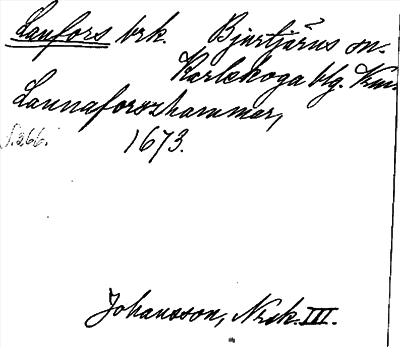 Laufors brk. Bjurtjärns sn.
Karlskoga blg. Krm.
Launaforsshammar,
s. 366. 1673.
Johansson, Nrsk. III.